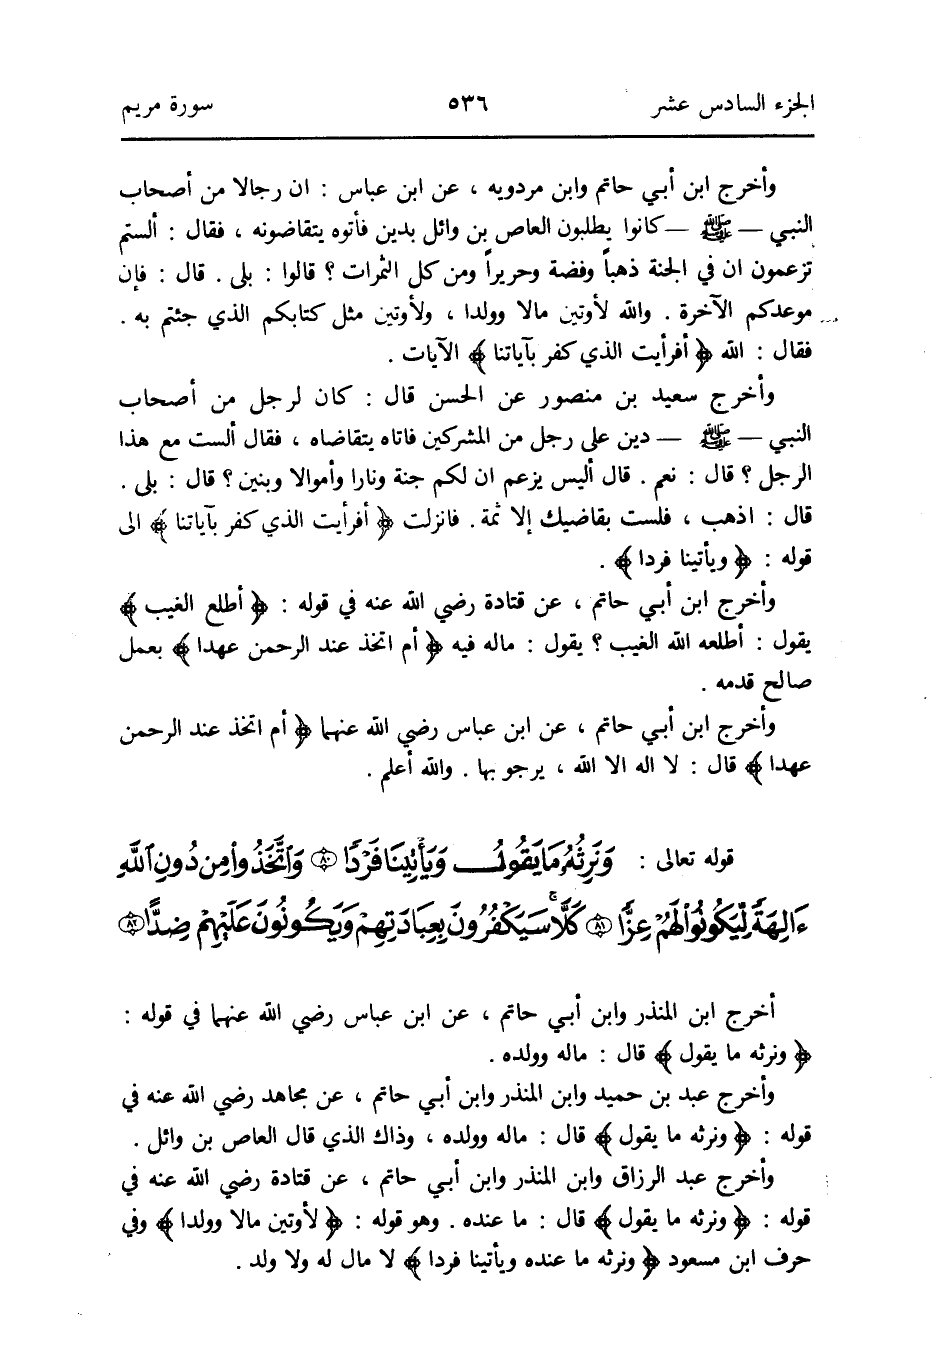 الجزء السادس عشر ٥٣٦ سورة مريم
وأخرج ابن أبي حاتم وابن مردويه ، عن ابن عباس : ان رجالا من أصحاب
النبي — ﷺ — كانوا يطلبون العاص بن وائل بدين فأتوه يتقاضونه ، فقال : ألستم
تزعمون ان في الجنة ذهباً وفضة وحريراً ومن كل الثمرات ؟ قالوا : بلى . قال : فإن
موعدكم الآخرة . والله لأوتين مالا وولدا ، ولأوتين مثل كتابكم الذي جئتم به .
فقال : الله ﴿ أفرأيت الذي كفر بآياتنا ﴾ الآيات .
وأخرج سعيد بن منصور عن الحسن قال : كان لرجل من أصحاب
النبي — ﷺ — دين على رجل من المشركين فاتاه يتقاضاه ، فقال ألست مع هذا
الرجل ؟ قال : نعم . قال أليس يزعم ان لكم جنة ونارا وأموالا وبنين ؟ قال : بلى .
قال : اذهب ، فلست بقاضيك إلا ثمة . فانزلت ﴿ أفرأيت الذي كفر بآياتنا ﴾ الى
قوله : ﴿ ويأتينا فردا ﴾ .
وأخرج ابن أبي حاتم ، عن قتادة رضي الله عنه في قوله : ﴿ أطلع الغيب ﴾
يقول : أطلعه الله الغيب ؟ يقول : ماله فيه ﴿ أم اتخذ عند الرحمن عهدا ﴾ بعمل
صالح قدمه .
وأخرج ابن أبي حاتم ، عن ابن عباس رضي الله عنهما ﴿ أم اتخذ عند الرحمن
عهدا ﴾ قال : لا اله الا الله ، يرجو بها . والله أعلم .
قوله تعالى : وَنَرِثُهُۥ مَا يَقُولُ وَيَأْتِينَا فَرْدًا ﴿٨٠﴾ وَٱتَّخَذُوا۟ مِن دُونِ ٱللَّهِ
ءَالِهَةً لِّيَكُونُوا۟ لَهُمْ عِزًّا ﴿٨١﴾ كَلَّا ۚ سَيَكْفُرُونَ بِعِبَادَتِهِمْ وَيَكُونُونَ عَلَيْهِمْ ضِدًّا ﴿٨٢﴾
أخرج ابن المنذر وابن أبي حاتم ، عن ابن عباس رضي الله عنهما في قوله :
﴿ ونرثه ما يقول ﴾ قال : ماله وولده .
وأخرج عبد بن حميد وابن المنذر وابن أبي حاتم ، عن مجاهد رضي الله عنه في
قوله : ﴿ ونرثه ما يقول ﴾ قال : ماله وولده ، وذاك الذي قال العاص بن وائل .
وأخرج عبد الرزاق وابن المنذر وابن أبي حاتم ، عن قتادة رضي الله عنه في
قوله : ﴿ ونرثه ما يقول ﴾ قال : ما عنده . وهو قوله : ﴿ لأوتين مالا وولدا ﴾ وفي
حرف ابن مسعود ﴿ ونرثه ما عنده ويأتينا فردا ﴾ لا مال له ولا ولد .